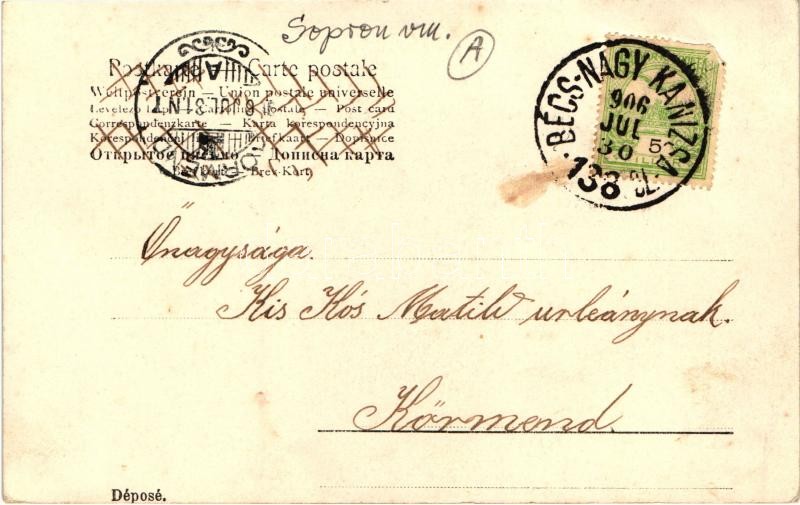 Sopron vm.
A
Postkarte — Carte postale
Weltpostverein — Union postale universelle
Levelező lap — Post card
Correspondenzkarte — Karta korespondencyjna
Korespondenční — Briefkaart — Dopisnice
Открытое письмо — Дописна карта
Brev-Kort.
BÉCS-NAGY KANIZSA
906
JUL
30
138
KÖRMEND
906 JUL 31 N7
A
5
Őnagysága.
Kis Kós Matild urleánynak.
Körmend.
Déposé.